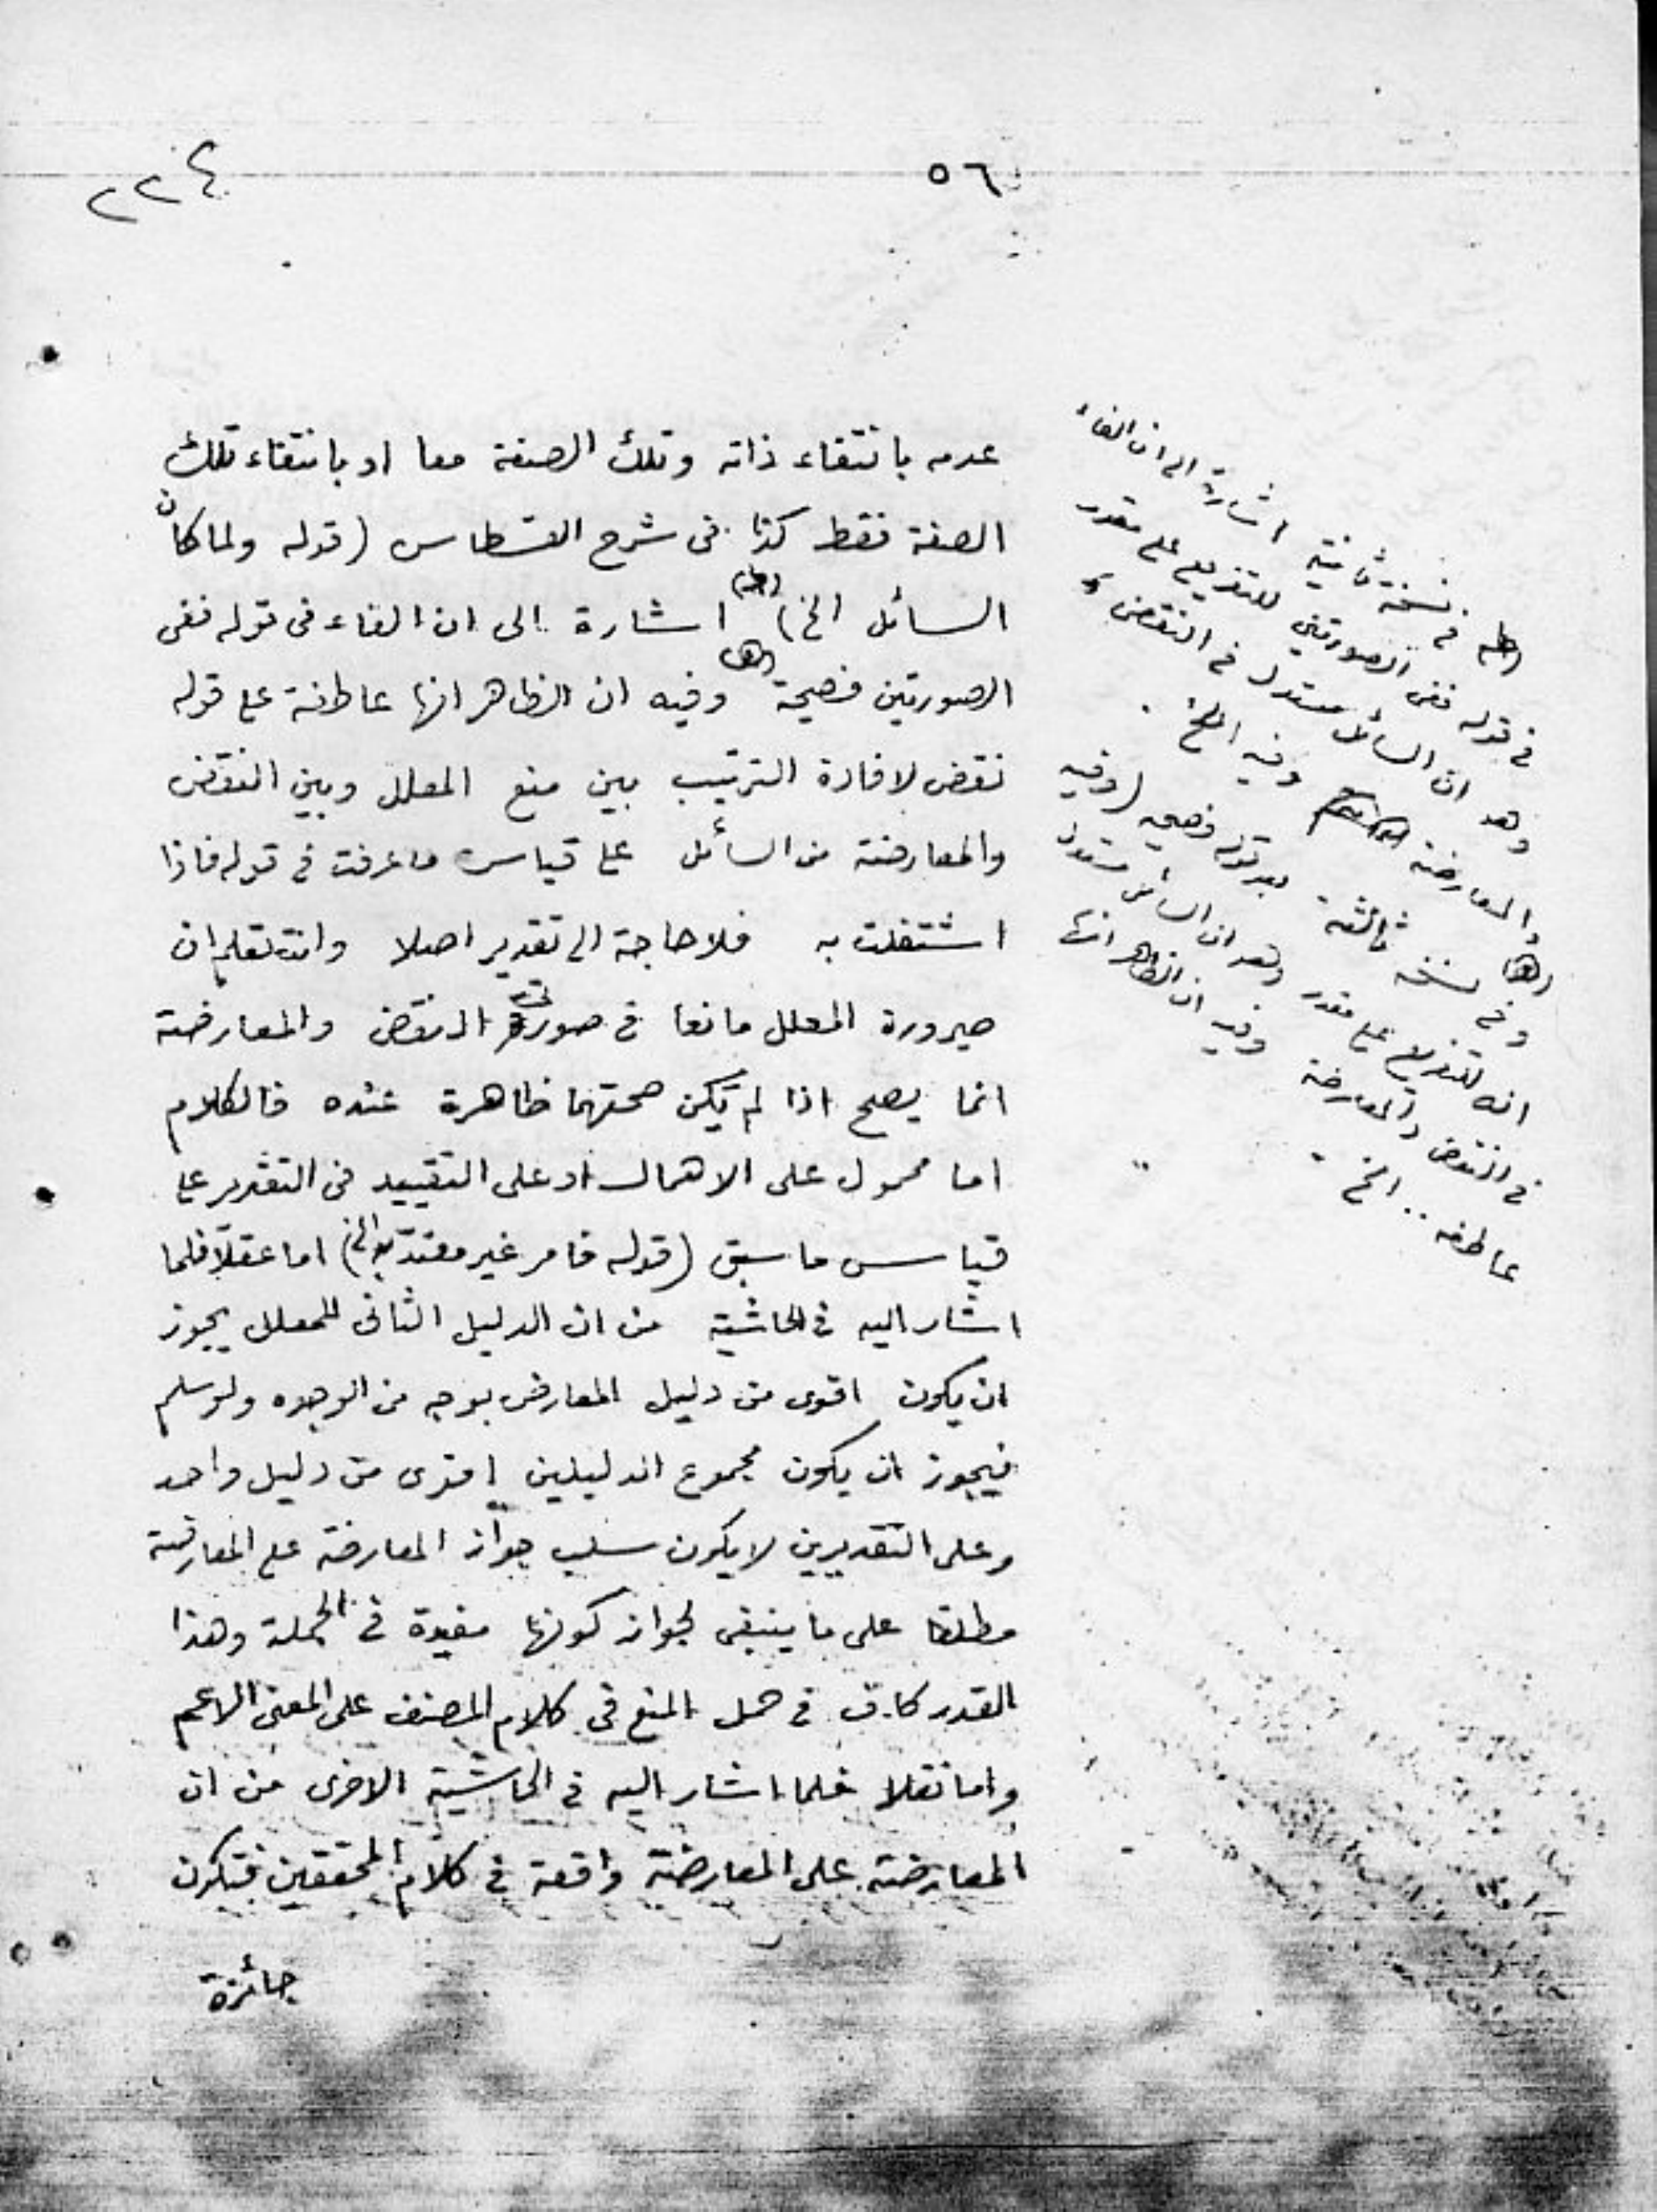 ٥٦
٢٢٤
عدمه بانتفاء ذاته وتلك الصفة معا او بانتفاء تلك
الصفة فقط كذا فى شرح القسطاس (قوله ولما كان
السائل الخ) اشارة الى ان الفاء فى قوله ففى
الصورتين فصيحة وفيه ان الظاهر انها عاطفة على قوله
نقض لافادة الترتيب بين منع المعلل وبين النقض
والمعارضة من السائل على قياس ما عرفت فى قوله فاذا
اشتغلت به فلا حاجة الى تقدير اصلا وانت تعلم ان
صيرورة المعلل مانعا فى صورتى النقض والمعارضة
انما يصح اذا لم تكن صحتهما ظاهرة عنده فالكلام
اما محمول على الاهمال او على التقييد فى التقدير على
قياس ما سبق (قوله فامر غير معتد به الخ) اما عقلا فلما
اشار اليه فى الحاشية من ان الدليل الثانى للمعلل يجوز
ان يكون اقوى من دليل المعارض بوجه من الوجوه ولو سلم
فيجوز ان يكون مجموع الدليلين اقوى من دليل واحد
وعلى التقديرين لا يكون سلب جواز المعارضة على المعارضة
مطلقا على ما ينبغى لجواز كونها مفيدة فى الجملة وهذا
القدر كاف فى حمل المنع فى كلام المصنف على المعنى الاعم
واما نقلا فلما اشار اليه فى الحاشية الاخرى من ان
المعارضة على المعارضة واقعة فى كلام المحققين فتكون
جائزة
فى نسخة ثانية اشارة الى ان الفاء
فى قوله ففى الصورتين للتفريع على مقدر
وهو ان السائل مستدل فى النقض
والمعارضة وفيه الخ .
وفى نسخة ثالثة بعد قوله فصيحه (وفيه
انه للتفريع على مقدر وهو ان السائل مستدل
فى النقض والمعارضة وفيه ان الظاهر انها
عاطفه .. الخ